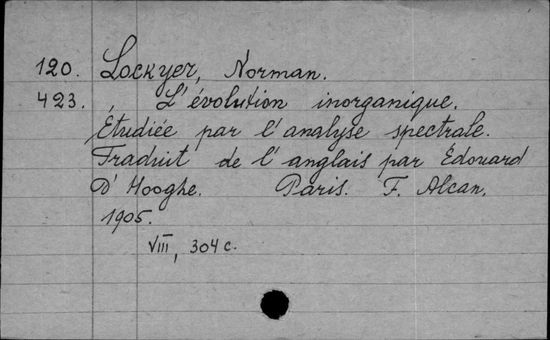 120. Lockyer, Norman.
423. L'évolution inorganique.
Étudiée par l'analyse spectrale.
Traduit de l'anglais par Édouard
D'Hooghe. Paris. F. Alcan.
1905.
VIII, 304 c.